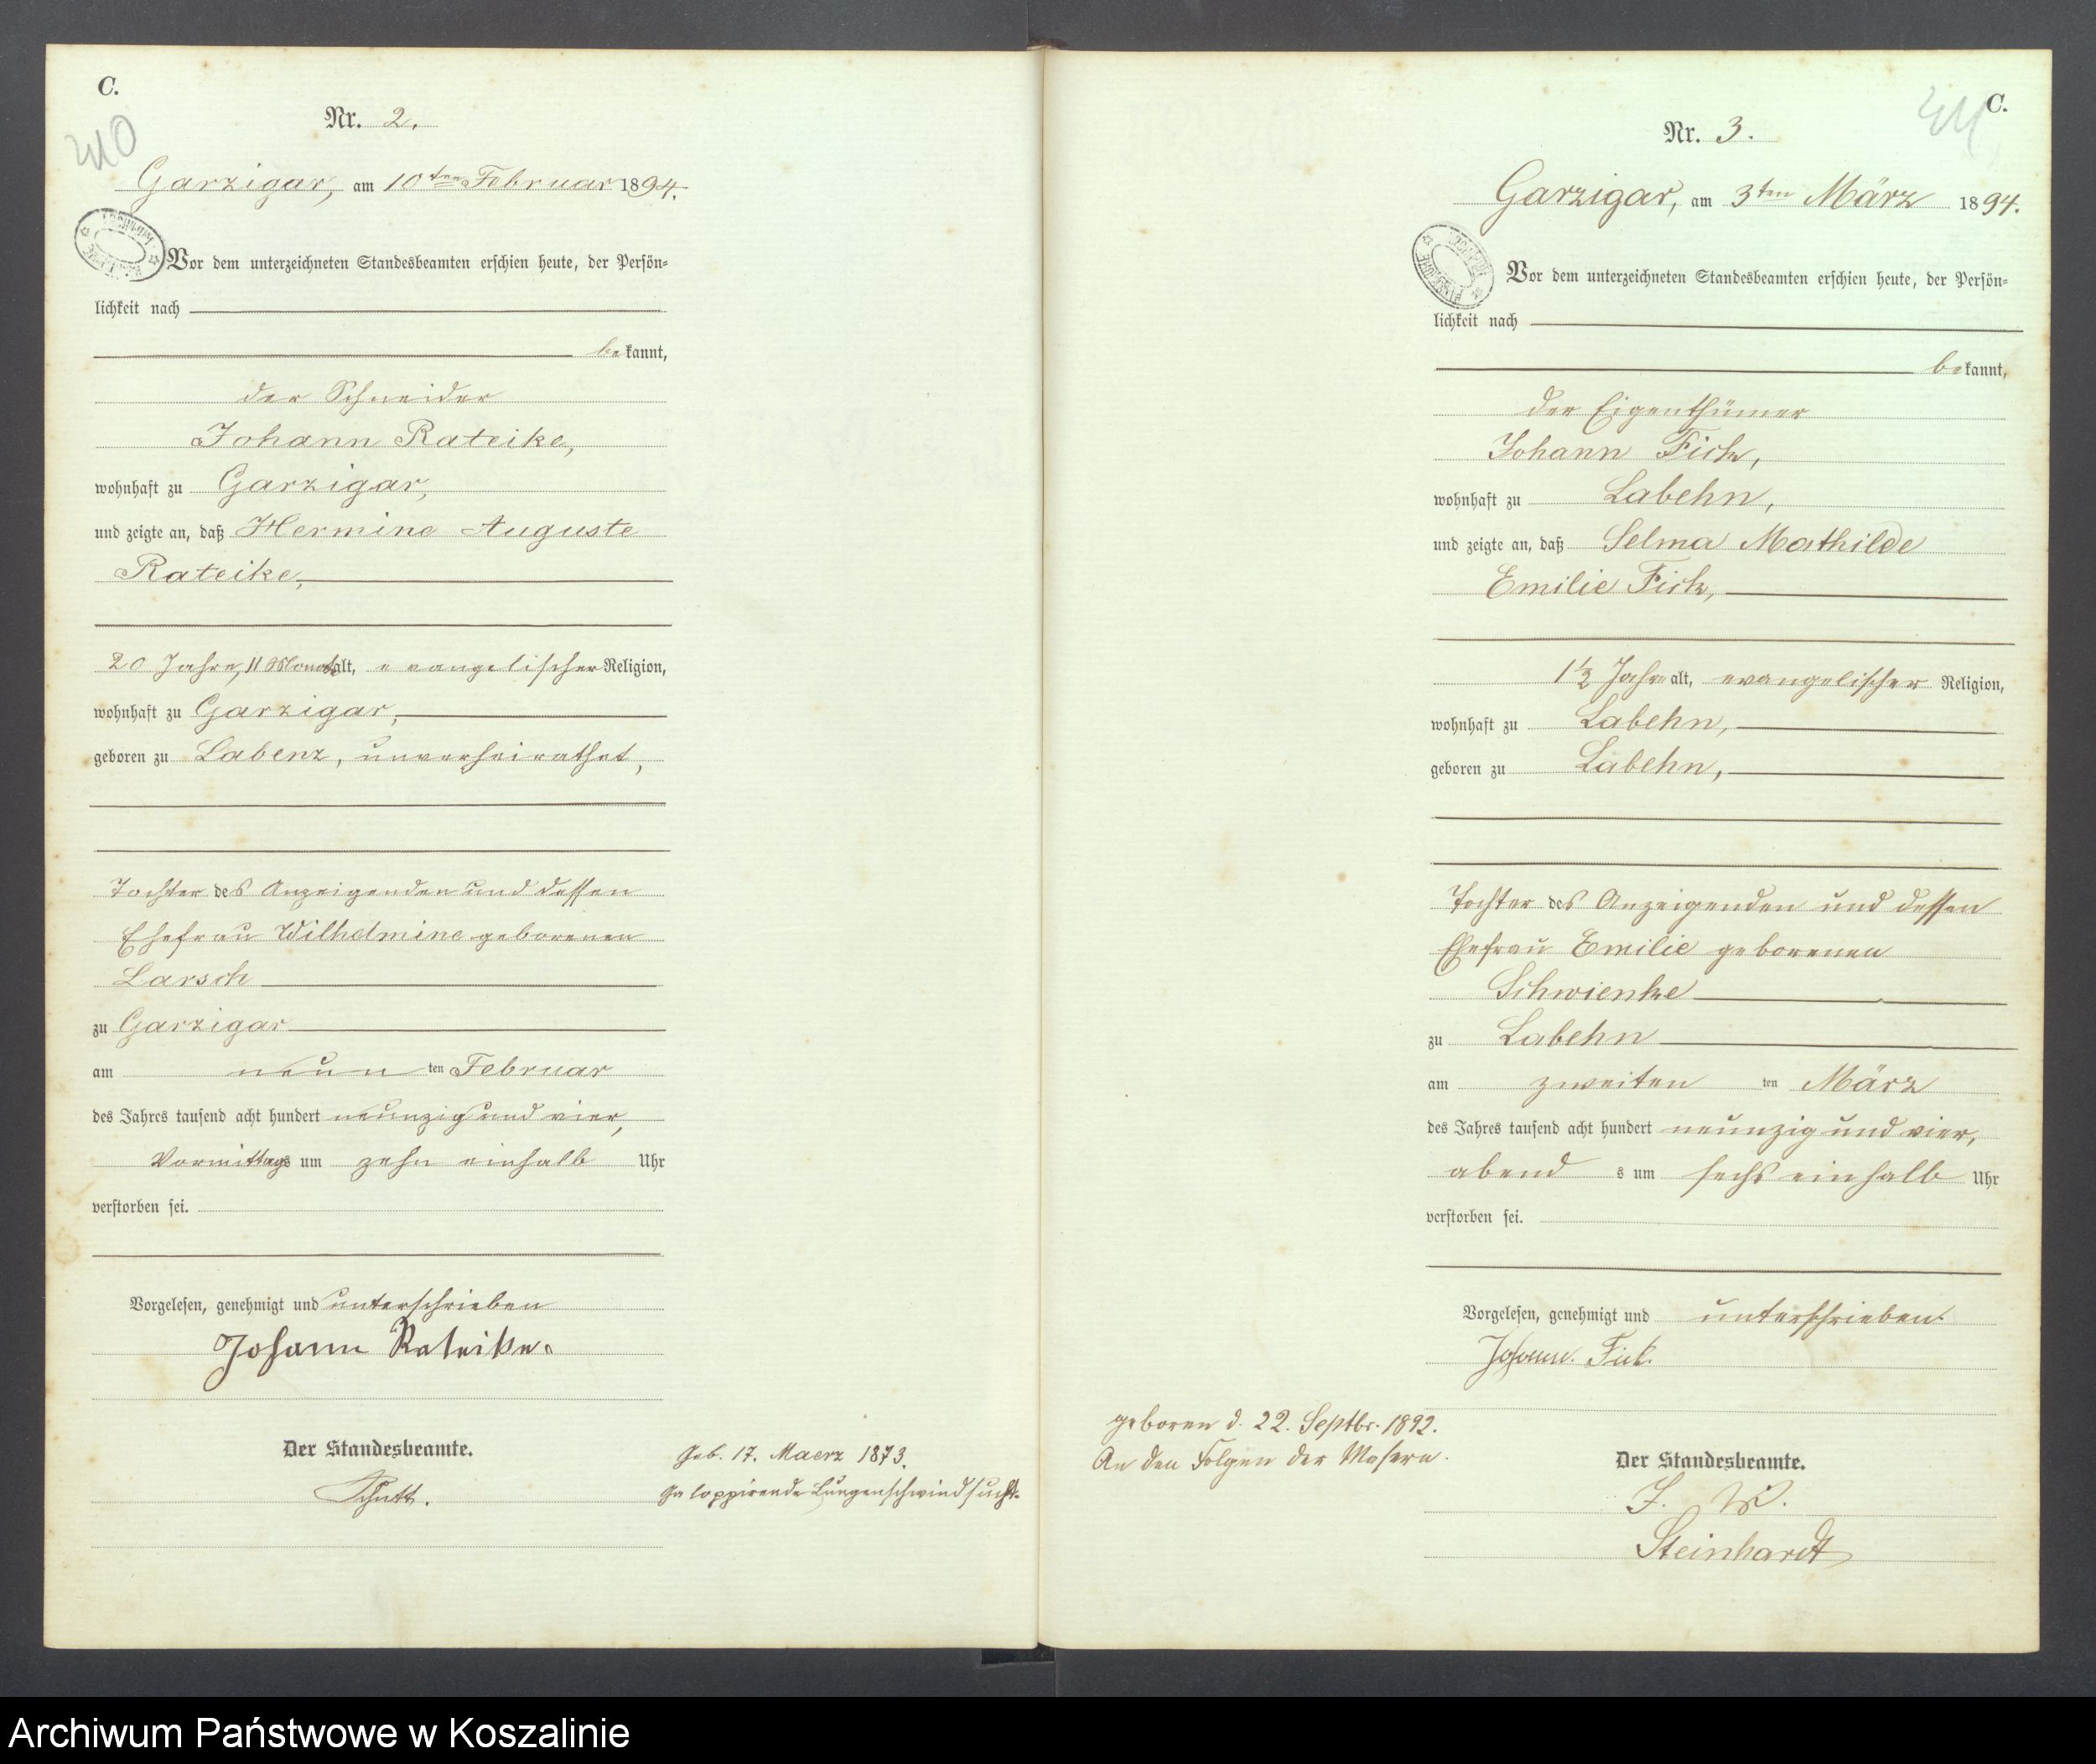 C.
Nr. 2.
Garzigar, am 10ten Februar 1894.
Vor dem unterzeichneten Standesbeamten erschien heute, der Persön-
lichkeit nach
bekannt,
der Schneider
Johann Rateike,
wohnhaft zu Garzigar,
und zeigte an, daß Hermine Auguste
Rateike,
20 Jahre, 11 Monate alt, evangelischer Religion,
wohnhaft zu Garzigar,
geboren zu Labenz, unverheirathet,
Tochter des Anzeigenden und dessen
Ehefrau Wilhelmine geborenen
Larsch
zu Garzigar
am neun ten Februar
des Jahres tausend acht hundert neunzig und vier,
Vormittags um zehn einhalb Uhr
verstorben sei.
Vorgelesen, genehmigt und unterschrieben
Johann Rateike.
Der Standesbeamte.
Geb. 17. Maerz 1873.
Galoppirende Lungenschwindsucht.
C.
Nr. 3.
Garzigar, am 3ten März 1894.
Vor dem unterzeichneten Standesbeamten erschien heute, der Persön-
lichkeit nach
bekannt,
der Eigenthümer
Johann Fick,
wohnhaft zu Labehn,
und zeigte an, daß Selma Mathilde
Emilie Fick,
1½ Jahre alt, evangelischer Religion,
wohnhaft zu Labehn,
geboren zu Labehn,
Tochter des Anzeigenden und dessen
Ehefrau Emilie geborenen
Schwienke
zu Labehn
am zweiten ten März
des Jahres tausend acht hundert neunzig und vier,
abend s um sechs einhalb Uhr
verstorben sei.
Vorgelesen, genehmigt und unterschrieben.
Johann. Fick.
geboren d. 22. Septbr. 1892.
An den Folgen der Masern.
Der Standesbeamte.
J. V.
Steinhardt
Archiwum Państwowe w Koszalinie